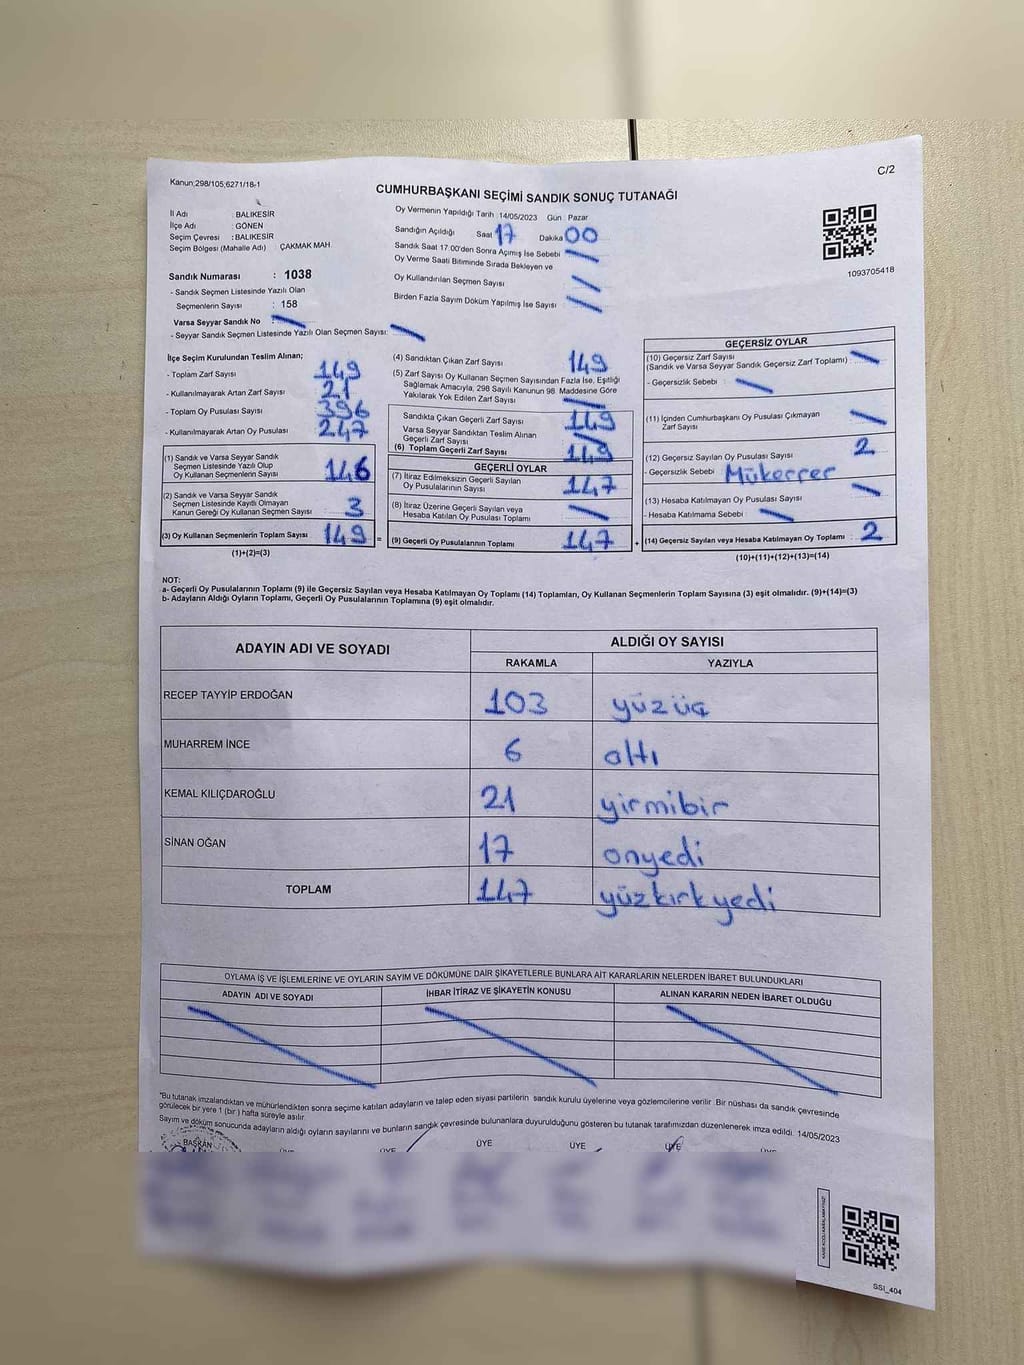 Kanun;298/105;6271/18-1
C/2
CUMHURBAŞKANI SEÇİMİ SANDIK SONUÇ TUTANAĞI
İl Adı : BALIKESİR
İlçe Adı : GÖNEN
Seçim Çevresi : BALIKESİR
Seçim Bölgesi (Mahalle Adı) ÇAKMAK MAH.
Sandık Numarası : 1038
- Sandık Seçmen Listesinde Yazılı Olan
Seçmenlerin Sayısı : 158
Varsa Seyyar Sandık No :
- Seyyar Sandık Seçmen Listesinde Yazılı Olan Seçmen Sayısı:
Oy Vermenin Yapıldığı Tarih : 14/05/2023 Gün : Pazar
Sandığın Açıldığı Saat 17 Dakika 00
Sandık Saat 17.00'den Sonra Açımış İse Sebebi
Oy Verme Saati Bitiminde Sırada Bekleyen ve
Oy Kullandırılan Seçmen Sayısı
Birden Fazla Sayım Döküm Yapılmış İse Sayısı
1093705418
İlçe Seçim Kurulundan Teslim Alınan;
- Toplam Zarf Sayısı : 149
- Kullanılmayarak Artan Zarf Sayısı : 21
- Toplam Oy Pusulası Sayısı : 396
- Kullanılmayarak Artan Oy Pusulası : 247
(1) Sandık ve Varsa Seyyar Sandık
Seçmen Listesinde Yazılı Olup
Oy Kullanan Seçmenlerin Sayısı : 146
(2) Sandık ve Varsa Seyyar Sandık
Seçmen Listesinde Kayıtlı Olmayan
Kanun Gereği Oy Kullanan Seçmen Sayısı : 3
(3) Oy Kullanan Seçmenlerin Toplam Sayısı : 149 =
(1)+(2)=(3)
(4) Sandıktan Çıkan Zarf Sayısı : 149
(5) Zarf Sayısı Oy Kullanan Seçmen Sayısından Fazla İse, Eşitliği
Sağlamak Amacıyla, 298 Sayılı Kanunun 98. Maddesine Göre
Yakılarak Yok Edilen Zarf Sayısı
Sandıkta Çıkan Geçerli Zarf Sayısı : 149
Varsa Seyyar Sandıktan Teslim Alınan
Geçerli Zarf Sayısı
(6) Toplam Geçerli Zarf Sayısı : 149
GEÇERLİ OYLAR
(7) İtiraz Edilmeksizin Geçerli Sayılan
Oy Pusulalarının Sayısı : 147
(8) İtiraz Üzerine Geçerli Sayılan veya
Hesaba Katılan Oy Pusulası Toplamı
(9) Geçerli Oy Pusulalarının Toplamı : 147 +
GEÇERSİZ OYLAR
(10) Geçersiz Zarf Sayısı
(Sandık ve Varsa Seyyar Sandık Geçersiz Zarf Toplamı)
- Geçersizlik Sebebi :
(11) İçinden Cumhurbaşkanı Oy Pusulası Çıkmayan
Zarf Sayısı
(12) Geçersiz Sayılan Oy Pusulası Sayısı : 2
- Geçersizlik Sebebi : Mükerrer
(13) Hesaba Katılmayan Oy Pusulası Sayısı
- Hesaba Katılmama Sebebi :
(14) Geçersiz Sayılan veya Hesaba Katılmayan Oy Toplamı : 2
(10)+(11)+(12)+(13)=(14)
NOT:
a- Geçerli Oy Pusulalarının Toplamı (9) ile Geçersiz Sayılan veya Hesaba Katılmayan Oy Toplamı (14) Toplamları, Oy Kullanan Seçmenlerin Toplam Sayısına (3) eşit olmalıdır. (9)+(14)=(3)
b- Adayların Aldığı Oyların Toplamı, Geçerli Oy Pusulalarının Toplamına (9) eşit olmalıdır.
ADAYIN ADI VE SOYADI ALDIĞI OY SAYISI
RAKAMLA YAZIYLA
RECEP TAYYİP ERDOĞAN 103 yüzüç
MUHARREM İNCE 6 altı
KEMAL KILIÇDAROĞLU 21 yirmibir
SİNAN OĞAN 17 onyedi
TOPLAM 147 yüzkırkyedi
OYLAMA İŞ VE İŞLEMLERİNE VE OYLARIN SAYIM VE DÖKÜMÜNE DAİR ŞİKAYETLERLE BUNLARA AİT KARARLARIN NELERDEN İBARET BULUNDUKLARI
ADAYIN ADI VE SOYADI İHBAR İTİRAZ VE ŞİKAYETİN KONUSU ALINAN KARARIN NEDEN İBARET OLDUĞU
"Bu tutanak imzalandıktan ve mühürlendikten sonra seçime katılan adayların ve talep eden siyasi partilerin sandık kurulu üyelerine veya gözlemcilerine verilir Bir nüshası da sandık çevresinde
görülecek bir yere 1 (bir) hafta süreyle asılır.
Sayım ve döküm sonucunda adayların aldığı oyların sayılarını ve bunların sandık çevresinde bulunanlara duyurulduğunu gösteren bu tutanak tarafımızdan düzenlenerek imza edildi. 14/05/2023
BAŞKAN ÜYE ÜYE ÜYE ÜYE ÜYE ÜYE
SSI_404